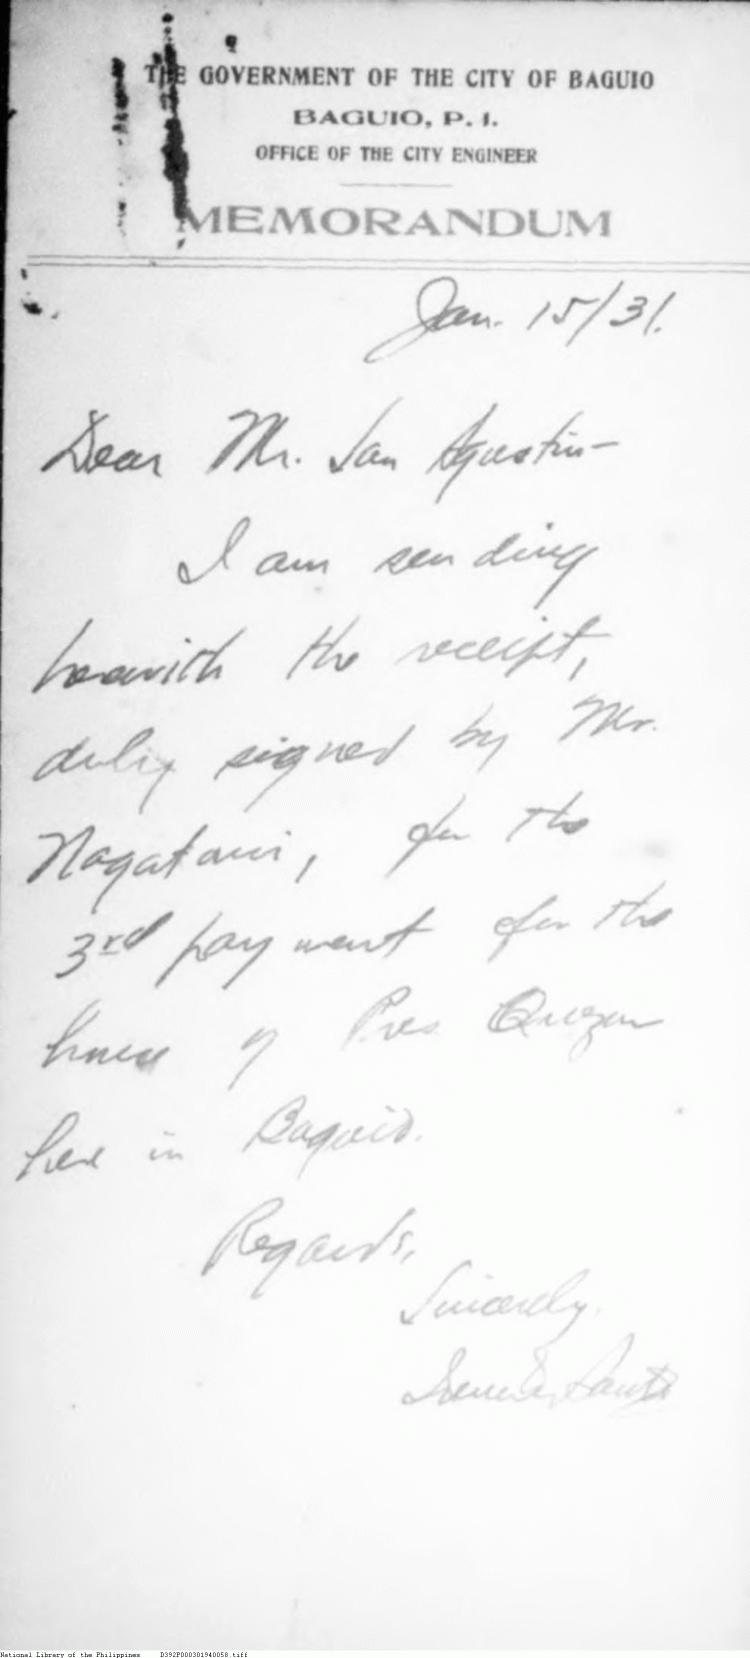 THE GOVERNMENT OF THE CITY OF BAGUIO
BAGUIO, P. I.
OFFICE OF THE CITY ENGINEER
MEMORANDUM
Jan. 15/31.
Dear Mr. San Agustin—
I am sending
herewith the receipt,
duly signed by Mr.
Nagatani, for the
3rd payment for the
house of Pres. Quezon
here in Baguio.
Regards,
Sincerely,
National Library of the Philippines D392P000301940058.tiff